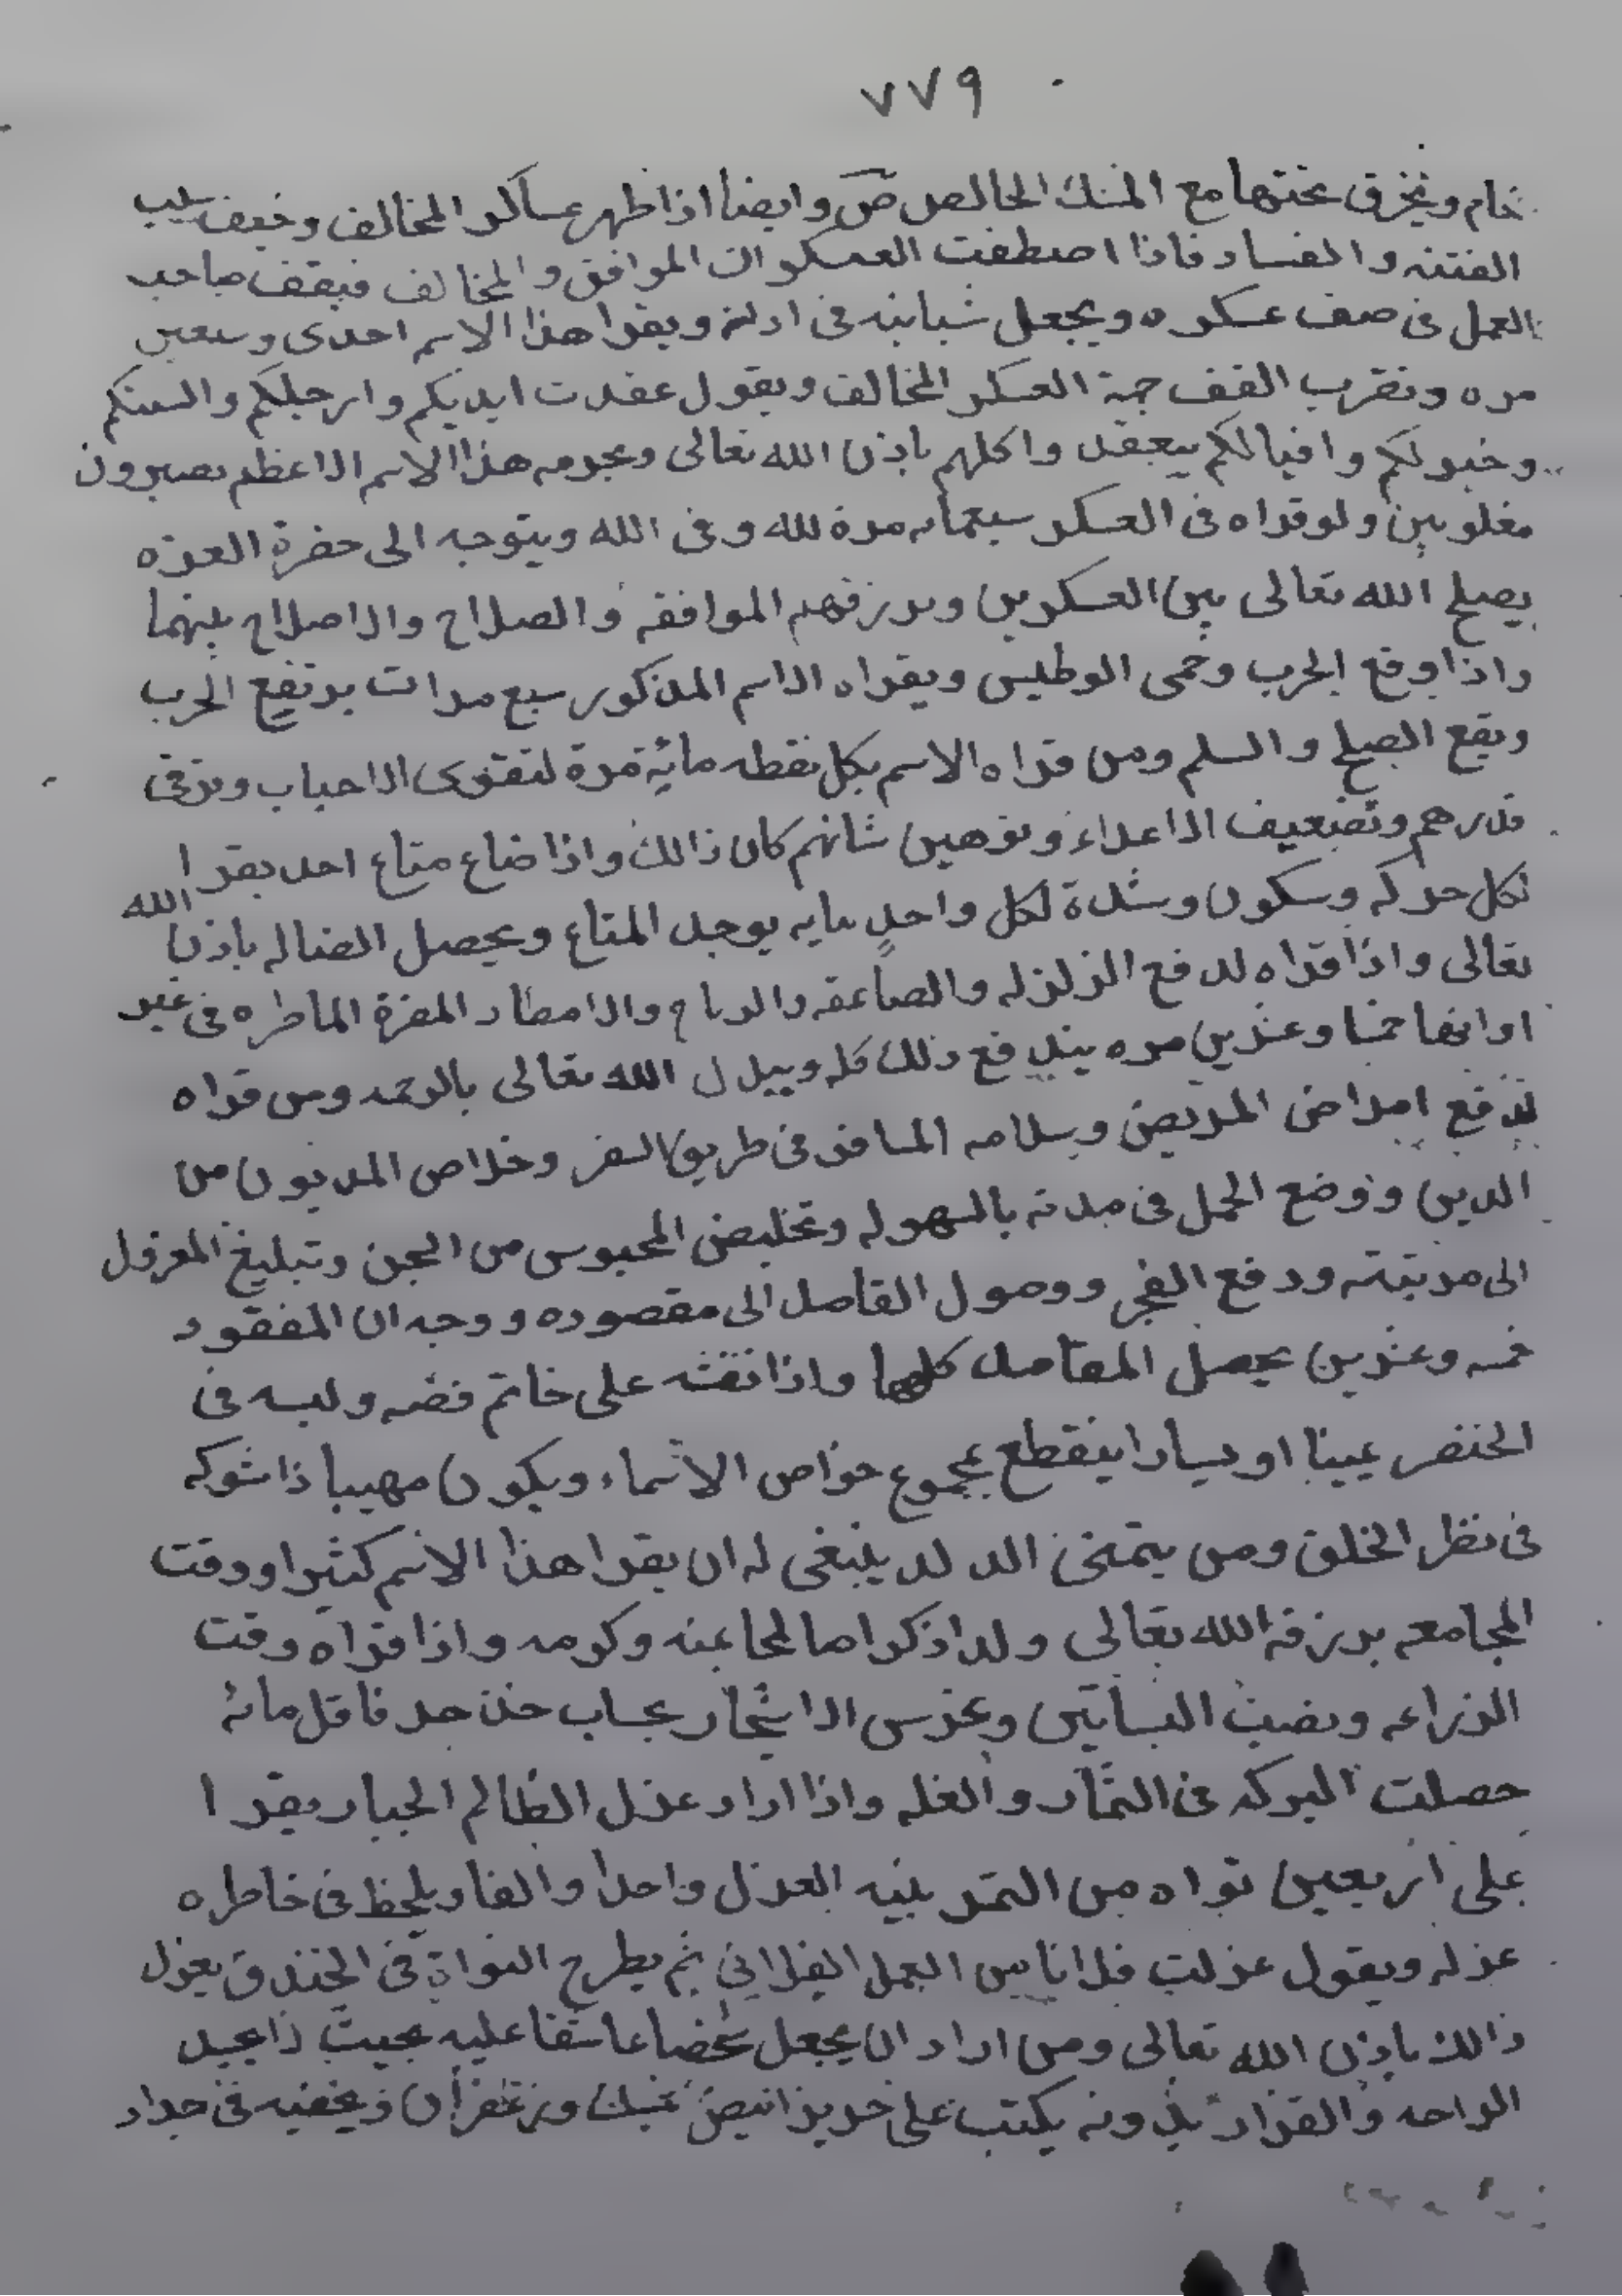 ٧٧٩
خام ويخرق تحتها مع المسك الخالص ص وايضا اذا ظهر عساكر المخالف وخيف سبب
الفتنه والفساد فاذا اصطفت العسكران الموافق والمخالف فيقف صاحب
العمل فى صف عسكره ويجعل شبابته فى اذنه ويقرا هذا الاسم احدى وسبعين
مره وتقرب القف جهة العسكر المخالف ويقول عقدت ايديكم وارجلكم والسنتكم
وخيولكم وافيالكم بيعقد واكلهم باذن الله تعالى وبحرمه هذا الاسم الاعظم يصيرون
مغلوبين ولو قراه فى العسكر سبعمايه مرة لله وفى الله ويتوجه الى حضرة العزه
يصلح الله تعالى بين العسكرين ويرزقهم الموافقه والصلاح والاصلاح بينهما
واذا وقع الحرب وحمى الوطيس ويقراه الاسم المذكور سبع مرات يرتفع الحرب
ويقع الصلح والسلم ومن قراه الاسم بكل نقطه مائة مرة لتقوى الاحباب وترقى
قدرهم وتضعيف الاعداء وتوهين شانهم كان ذالك واذا ضاع متاع احد يقرا
لكل حركه وسكون وشدة لكل واحد مايه يوجد المتاع ويحصل الضاله باذن الله
تعالى واذا قراه لدفع الزلزله والصاعقه والرياح والامطار المضرة الماطره فى غير
اوانها خمسا وعشرين مره يندفع ذلك كله ويبدل الله تعالى بالرحمه ومن قراه
لدفع امراض المريض وسلامه المسافر فى طريق السفر وخلاص المديون من
الدين ووضع الحمل فى مدته بالسهوله وتخليص المحبوس من السجن وتبليغ المعزول
الى مرتبته ودفع الفجر ووصول القاصد الى مقصوده ووجدان المفقود
خمسه وعشرين يحصل المقاصد كلها واذا نقشه على خاتم فضه ولبسه فى
الخنصر يمينا او يسارا ينقطع بمجموع خواص الاسماء ويكون مهيبا ذا شوكه
فى نظر الخلق ومن يتمنى الولد ينبغى له ان يقرا هذا الاسم كثيرا ووقت
المجامعه يرزقه الله تعالى ولدا ذكرا صالحا بمنه وكرمه واذا قراه وقت
الزراعه ونصب البساتين وغرس الاشجار بحساب خذ حد فاقل مائه
حصلت البركه فى الثمار والغله واذا اراد عزل الظالم الجبار يقرا
على اربعين نواه من التمر بنيه العزل واحدا والفا ويلحظ فى خاطره
عزله ويقول عزلت فلانا من العمل الفلانى ثم يطرح النواة فى الخندق يعزل
ذالك باذن الله تعالى ومن اراد ان يجعل شخصا عاشقا عليه بحيث لا يجد
الراحه والقرار بدونه يكتب على حرير ابيض بمسك وزعفران ويخفيه فى جدار